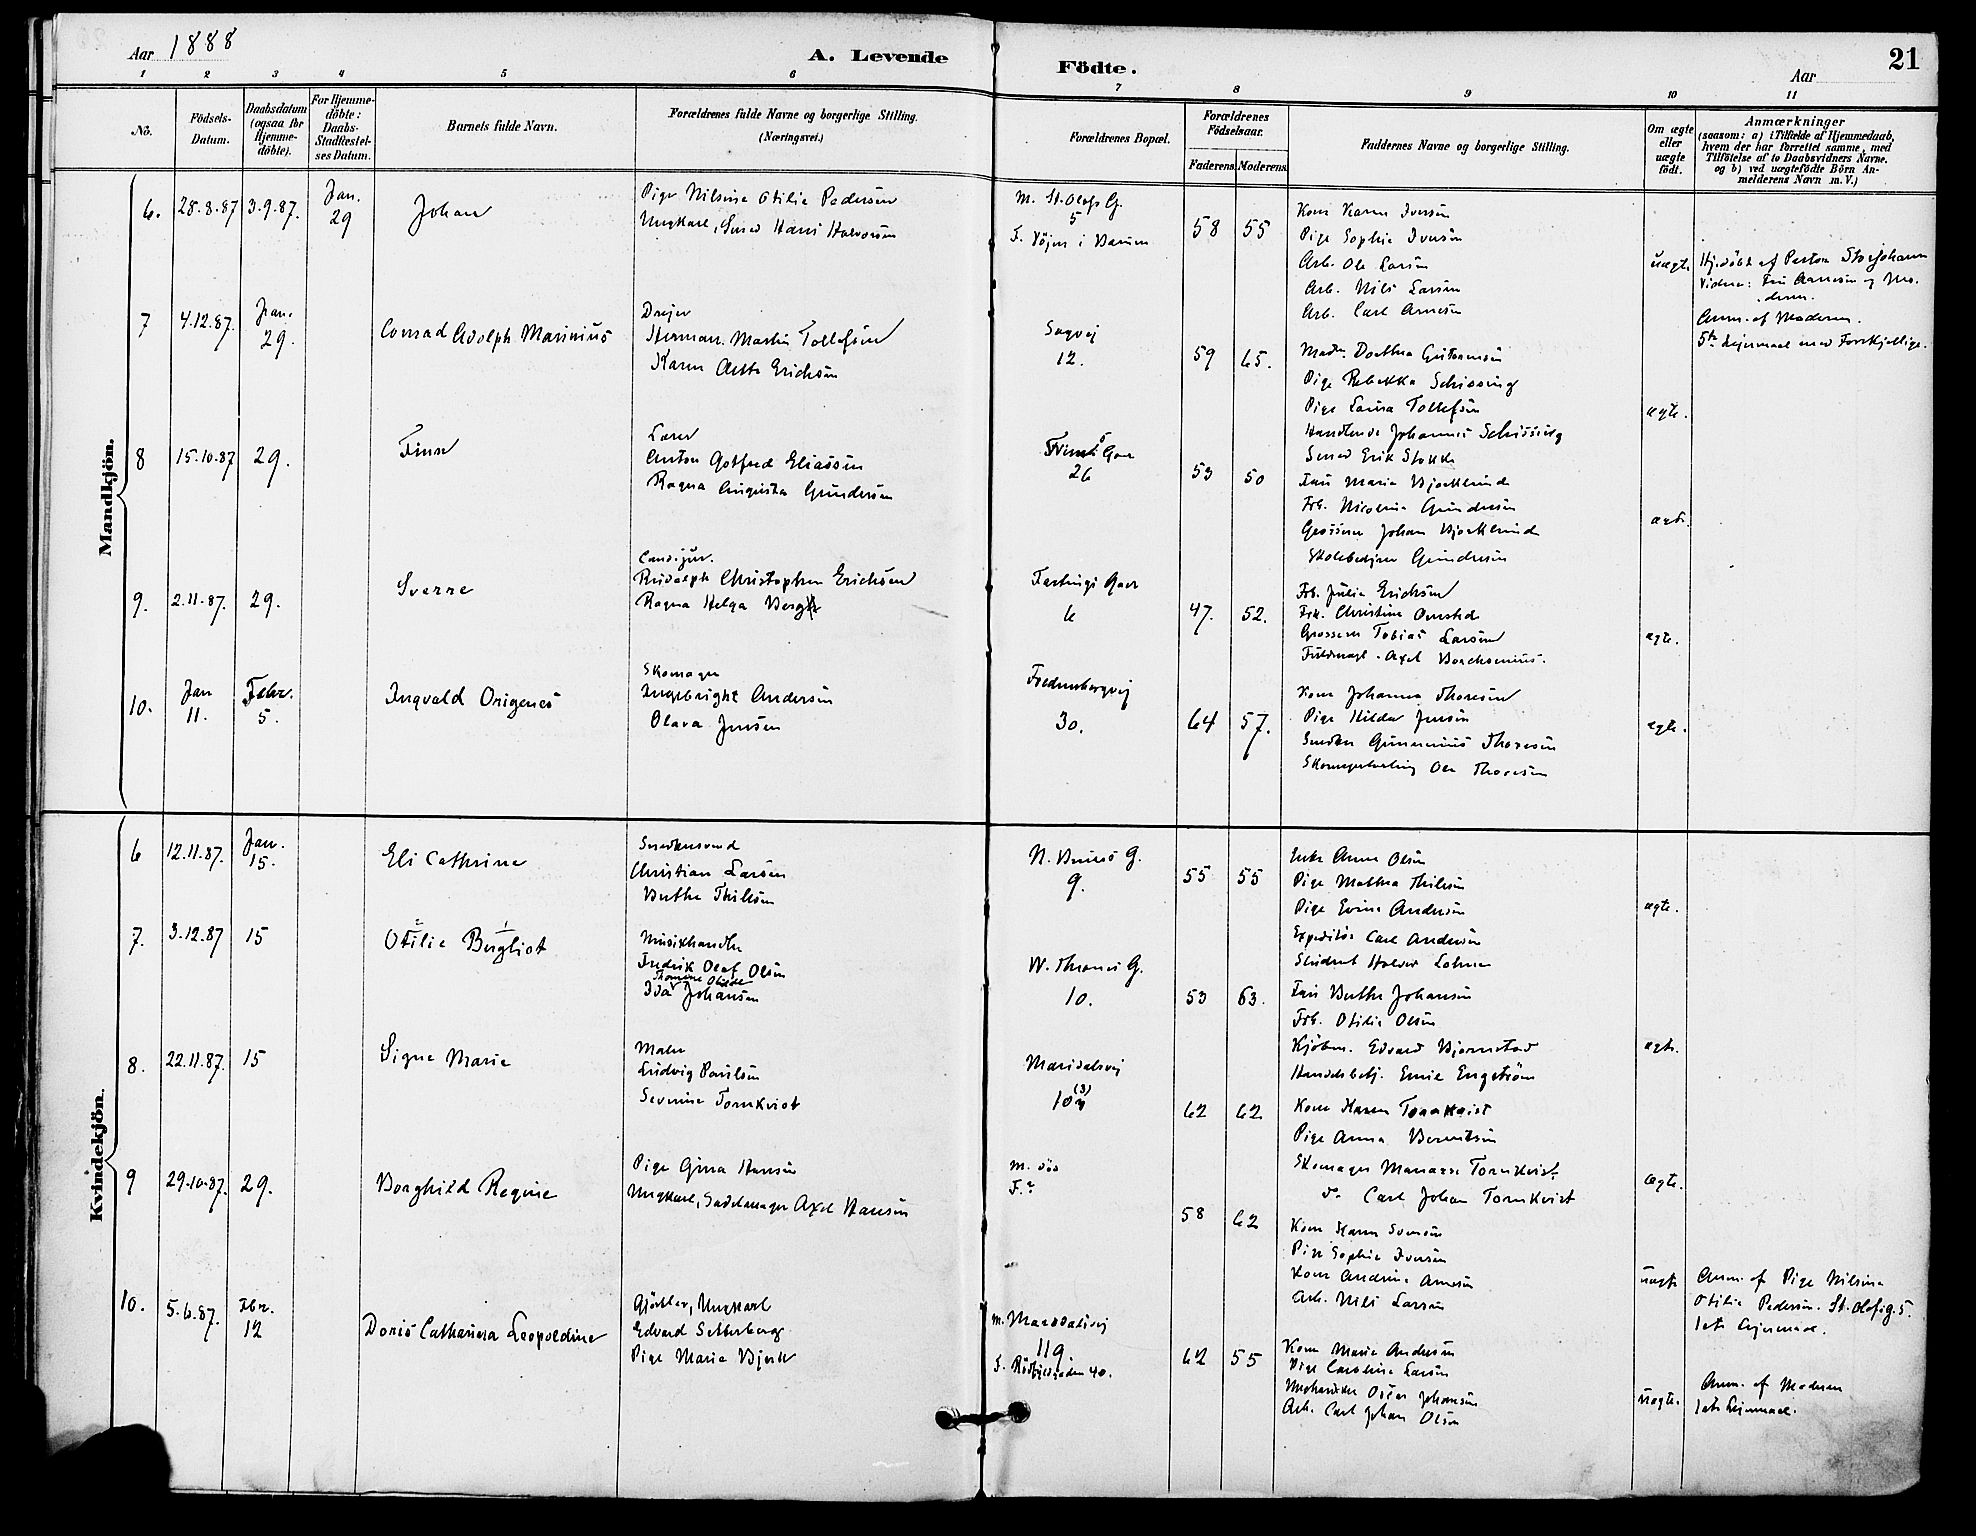 Aar 1888
A. Levende
Födte.
Aar
21
1 2 3 4 5 6 7 8 9 10 11
No.
Födsels-
Datum.
Daabsdatum
(ogsaa for
Hjemme-
döbte).
For Hjemme-
döbte:
Daabs-
Stadfæstel-
ses Datum.
Barnets fulde Navn.
Forældrenes fulde Navne og borgerlige Stilling.
(Næringsvei.)
Forældrenes Bopæl.
Forældrenes
Födselsaar.
Faderens. Moderens.
Faddernes Navne og borgerlige Stilling.
Om ægte
eller
uægte
födt.
Anmærkninger
(saasom: a) i Tilfælde af Hjemmedaab,
hvem der har forrettet samme, med
Tilföielse af to Daabsvidners Navne.
og b) ved uægtefödte Börn An-
melderens Navn m.V.)
Mandkjön.
6. 28.8.87 3.9.87. Jan. 29
Johan
Pige Nilsine Otilie Pedersen
Ungkarl, Smed Hans Halvorsen
M. St. Olafs G.
5
F. Töjen i Barum
58 55
Kone Karen Iversen
Pige Sophie Iversen
Arb. Ole Larsen
Arb. Nils Larsen
Arb. Carl Arnesen
uægte
Hj.döbt af Pastor Storjohann
Vidner: Fru Arnesen og Mo-
deren.
Anm. af Moderen.
5te Lejermaal med Forskjellige.
7 4.12.87. Jan. 29.
Conrad Adolph Marinius
Drejer
Herman Martin Tollefsen
Karen Aette Erichsen
Sagvej
12.
59 65.
Pige Rebekka Schissing
Pige Laura Tollefsen
Handlende Johannes Schissing
Smed Erik Stokke
ægte.
8 15.10.87 29.
Finn
Lærer
Anton Gotfred Eliassen
Ragna Augusta Gundersen
26
53 50
Fru Marie Bjorklund
Frk. Nicoline Gundersen
Grosserer Johan Bjorklund
Skolebestyrer Gundersen
ægte.
9. 2.11.87. 29.
Sverre
Cand.jur.
Rudolph Christopher Erichsen
Ragna Helga Bergh
Fastings Gade
6
47. 52.
Frk. Julie Erichsen
Frk. Christine Omsted
Grosserer Tobias Larsen
Fuldmægt. Axel Borchsenius.
ægte.
10. Jan 11. Febr. 5.
Ingvald Origenes
Skomager
Ingebright Andersen
Olava Jensen
Fredensborgvej
30.
64 57.
Kone Johanna Thoresen
Pige Hilda Jensen
Snedker Gunerius Thoresen
Skomagerlærling Ole Thoresen
ægte.
Kvindekjön.
6 12.11.87. Jan. 15.
Eli Cathrine
Snedkersvend
Christian Larsen
Berthe Thilesen
N. Bruns G.
9.
55 55
Enke Anne Olsen
Pige Mathea Thilesen
Pige Evine Andersen
Expeditör Carl Andersen
Student Halvor Lohne
ægte.
7. 3.12.87 15
Otilie Bergliot
Musikhandler
Fredrik Olaf Olsen
Thomine Otilde
Ida Johansen
W. Thranes G.
10.
53 63.
Fru Berthe Johansen
Frk. Otilie Olsen
Kjöbm. Edvard Bjornstad
Handelsbetj. Emil Engström
ægte.
8. 22.11.87. 15
Signe Marie
Maler
Ludvig Paulsen
Severine Tornkvist
Maridalsvej
10
(3)
62 62
Kone Karen Tornkvist
Pige Anna Berntsen
Skomager Manasse Tornkvist
do. Carl Johan Tornkvist
ægte.
9 29.10.87. 29.
Borghild Regine
Pige Gina Hansen
Ungkarl, Sadelmager Axel Hansen
M. död
F. ?
58 62
Kone Karen Iversen
Pige Sophie Iversen
Kone Andrine Arnesen
Arb. Nils Larsen
uægte
Anm. af Pige Nilsine
Otilie Pedersen. St. Olafsg. 5.
1ste Lejermaal.
10. 5.6.87. Fbr. 12
Doris Cathauera Leopoldine
Gjörtler, Ungkarl
Edvard Setterberg
Pige Marie Bjerk
M. Maridalsvej
119.
F. 40.
62 55
Kone Marie Andersen
Pige Caroline Larsen
Mechaniker Oscar Johansen
Arb. Carl Johan Olsen
uægte.
Anm. af Moderen
1ste Lejermaal.